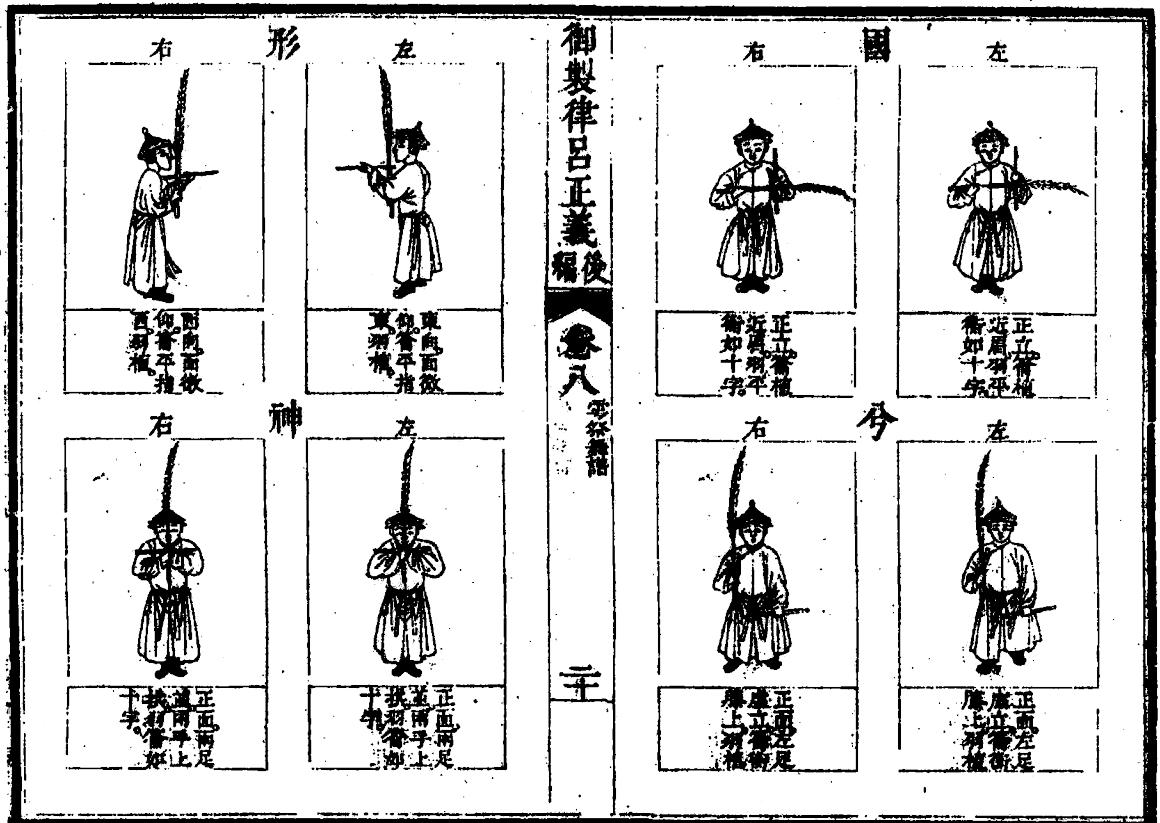 國
左
正立。籥植
近眉。羽平
衡如十字。
右
正立。籥植
近眉。羽平
衡如十字。
兮
左
正面。左足
虛立。籥衡
膝上。羽植
右
正面。左足
虛立。籥衡
膝上。羽植
御製律呂正義後編
卷八
雩祭舞譜
二十
形
左
東向。面微
仰。籥平指
東。羽植。
右
西向。面微
仰。籥平指
西。羽植。
神
左
正面。兩足
並。兩手上
拱。羽籥如
十字。
右
正面。兩足
並。兩手上
拱。羽籥如
十字。